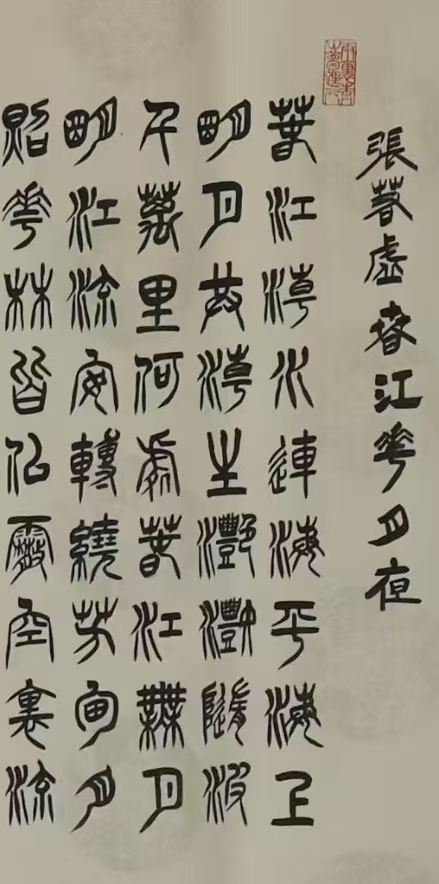 張若虛春江花月夜
春江潮水連海平海上
明月共潮生灩灩隨波
千萬里何處春江無月
明江流宛轉繞芳甸月
照花林皆似霰空裏流